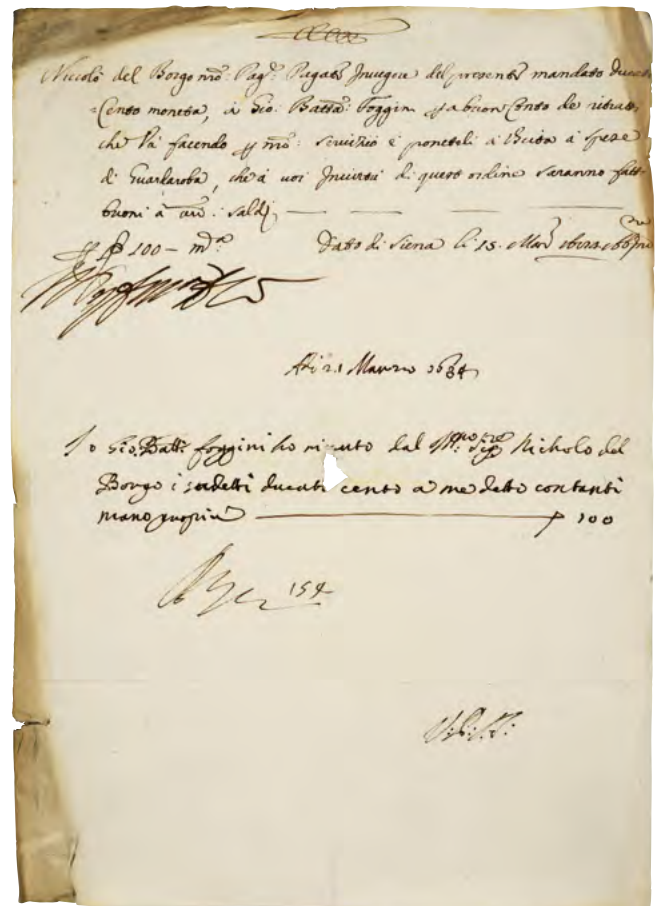 Niccolò del Borgo nro: Pagre: Pagate In vigore del presente mandato Ducati
Cento moneta, à Gio: Batta: Foggini p a buon Conto de ritratti,
che Và facendo p nro: servizio e ponetoli à Uscita à spese
di Guardaroba, che à voi In virtù di questo ordine saranno fatti
buoni à saldi
100 - mta
Dato di Siena li 15. Marzo
Adi 21 Marzo 1684
Io Gio. Batt: foggini ho riceuto dal Sigre Nicholo del
Borgo i sudetti ducati cento a me detto contanti
mano propria 100
154